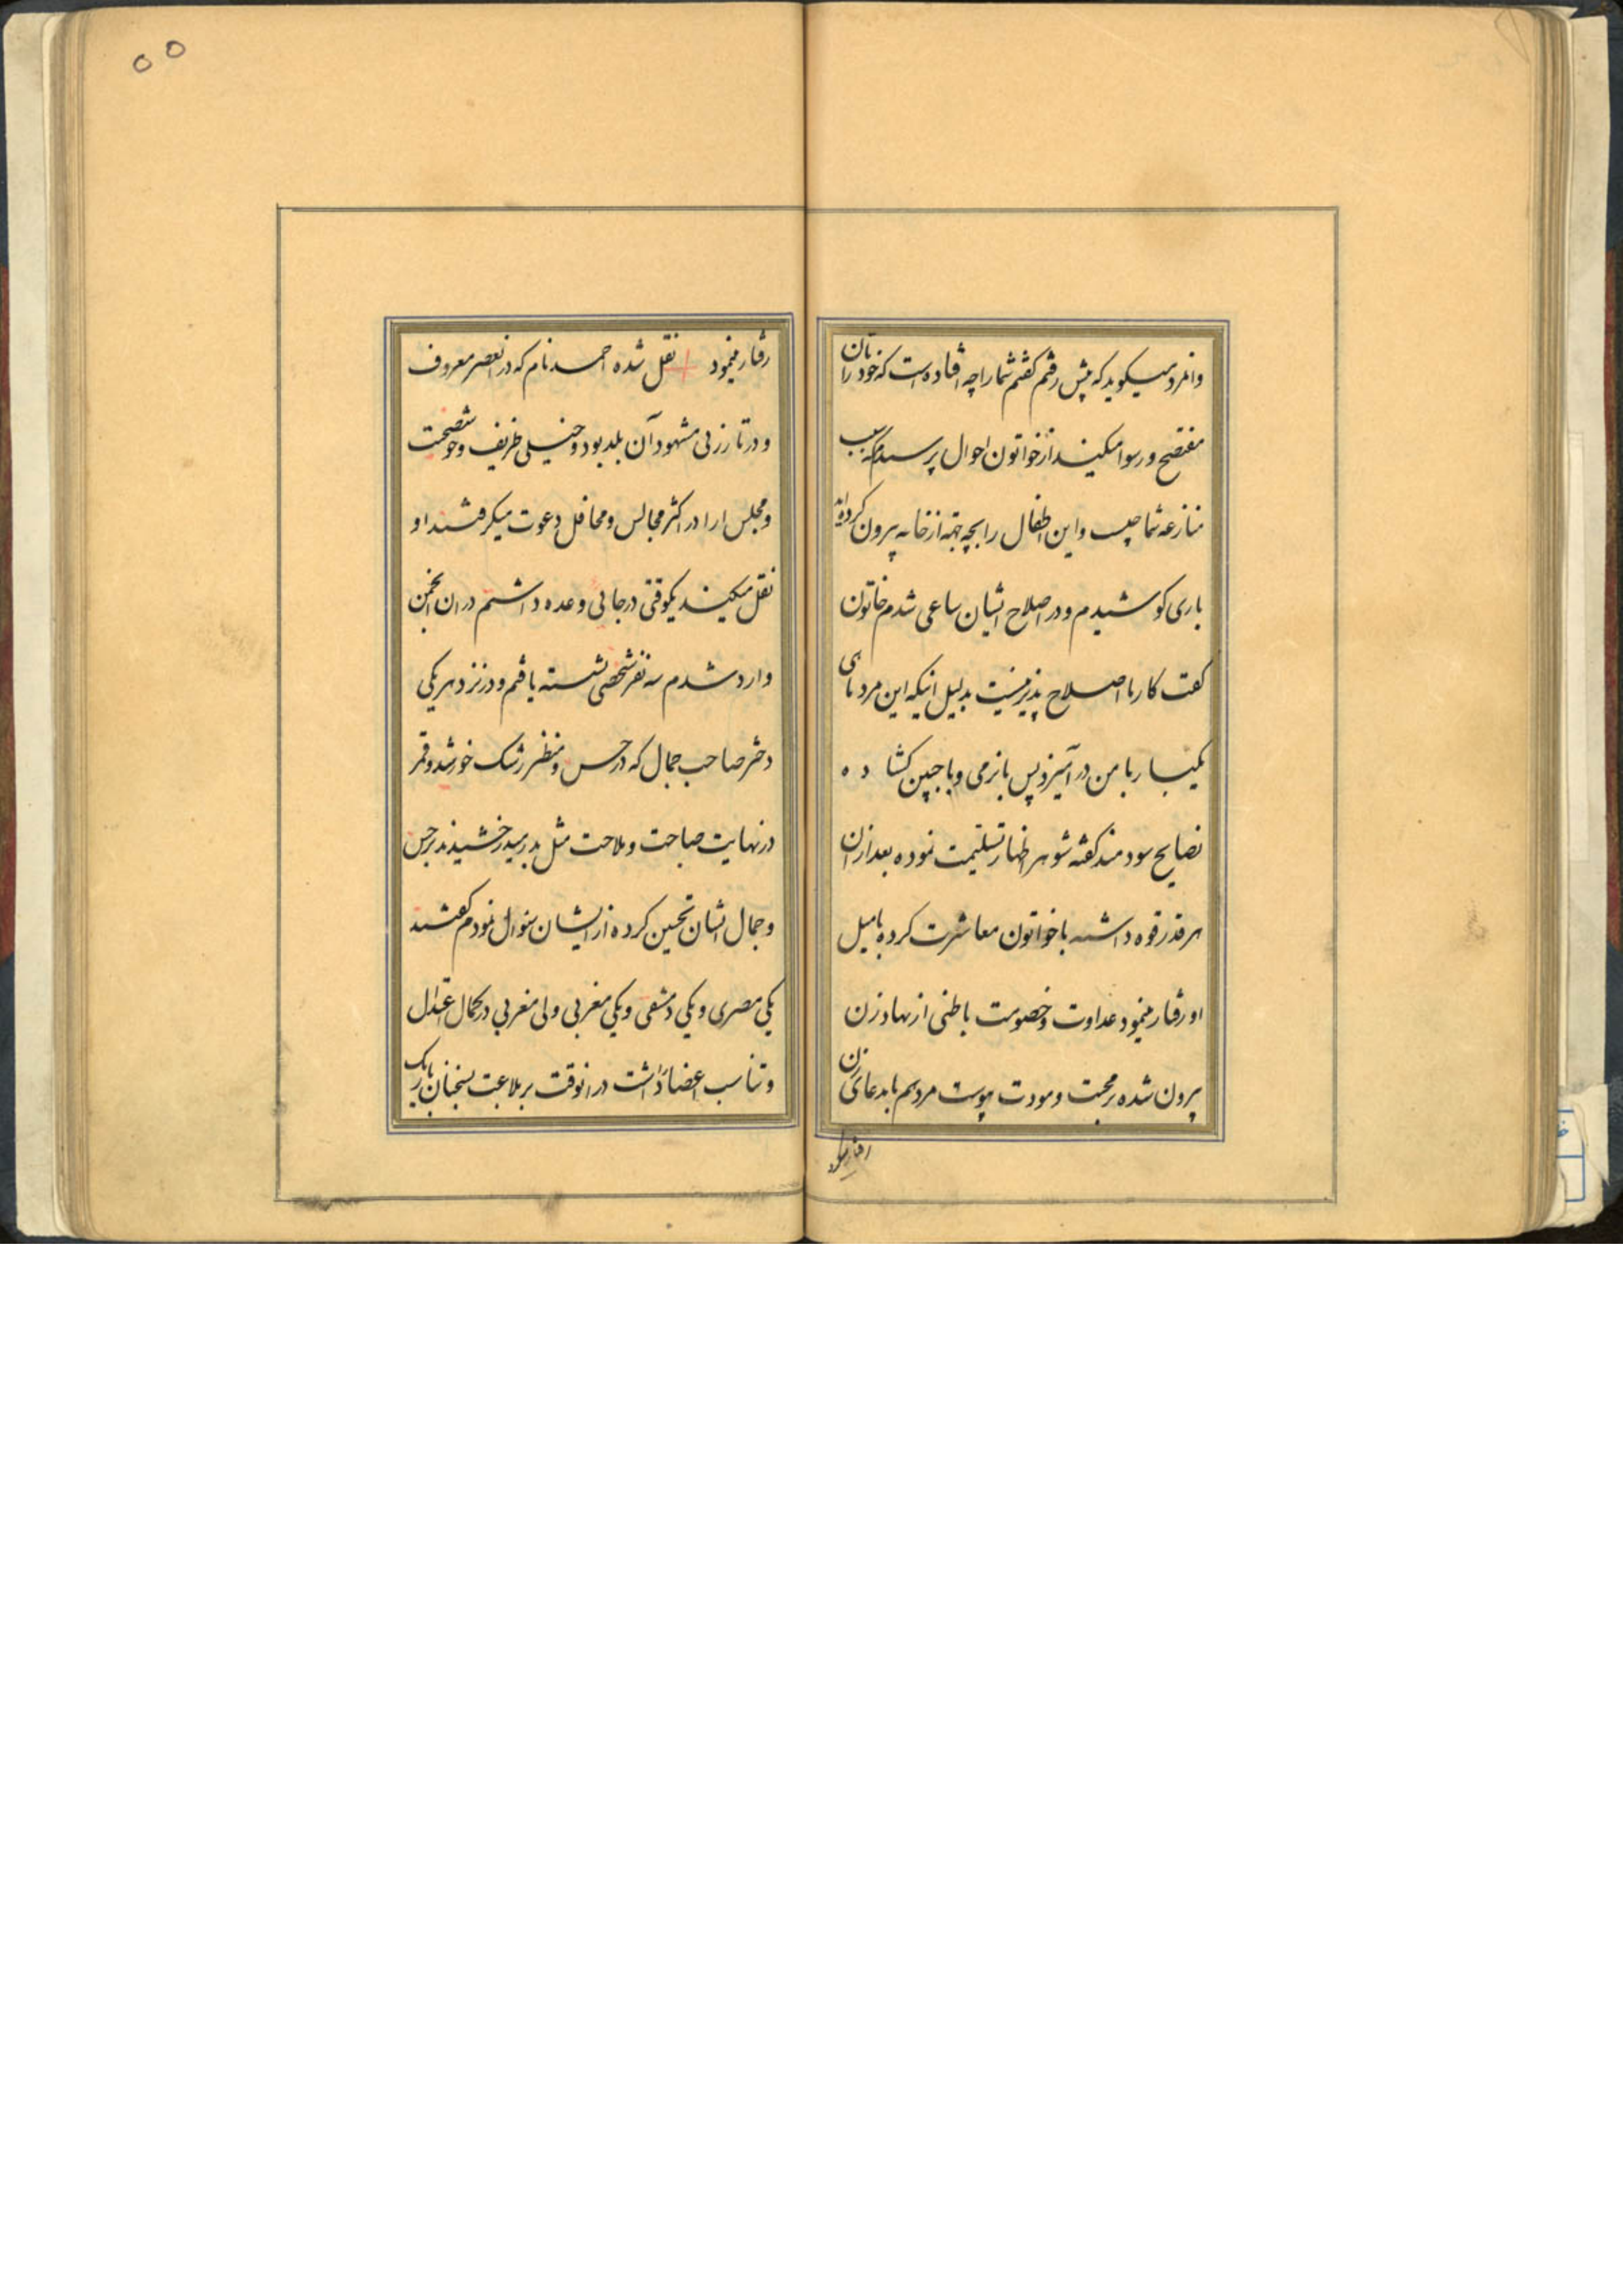 وانمرد میگوید که پیش رفتم گفتم شما را چه افتاده است که خودتان را
مفتضح و رسوا میکنید از خواتون احوال پرسیدم که سبب
منازعه شما چیست و این اطفال را بچه جهة از خانه بیرون کرده‌اند
باری کوشیدم و در اصلاح ایشان ساعی شدم خاتون
گفت کار ما اصلاح پذیر نیست بدلیل اینکه این مرد
یکبار با من در آمیزد پس با نرمی و با جبین کشا ده
نصایح سودمند گفته شوهر اظهار تسلیمت نموده بعد از ان
هر قدر قوه داشته با خواتون معاشرت کرده با میل
او رفتار مینمود عداوت و خصومت باطنی از نهاد زن
بیرون شده بر محبت و مودت پیوست مرد هم با مدعای زن
رفتار مینمود
۵۵
رفتار مینمود نقل شده احمد نام که در انعصر معروف
و در تار زنی مشهود آن بلد بود و خیلی ظریف و خوش صحبت
و مجلس ارا در اکثر مجالس و محافل دعوت میکرفتند او
نقل میکند یکوقتی در جائی وعده داشتم در ان انجمن
وارد شدم سه نفر شخصی نشسته یافتم و در نزد هر یکی
دختر صاحب جمال که در حسن و منظر رشک خورشید و قمر
در نهایت صباحت و ملاحت مثل بدر میدرخشیدند بر حسن
و جمال ایشان تحسین کرده از ایشان سئوال نمودم گفتند
یکی مصری و یکی دمشقی و یکی مغربی ولی مغربی در کمال اعتدال
و تناسب اعضا داشت در انوقت بر ملاعبت بسخنان رکیک